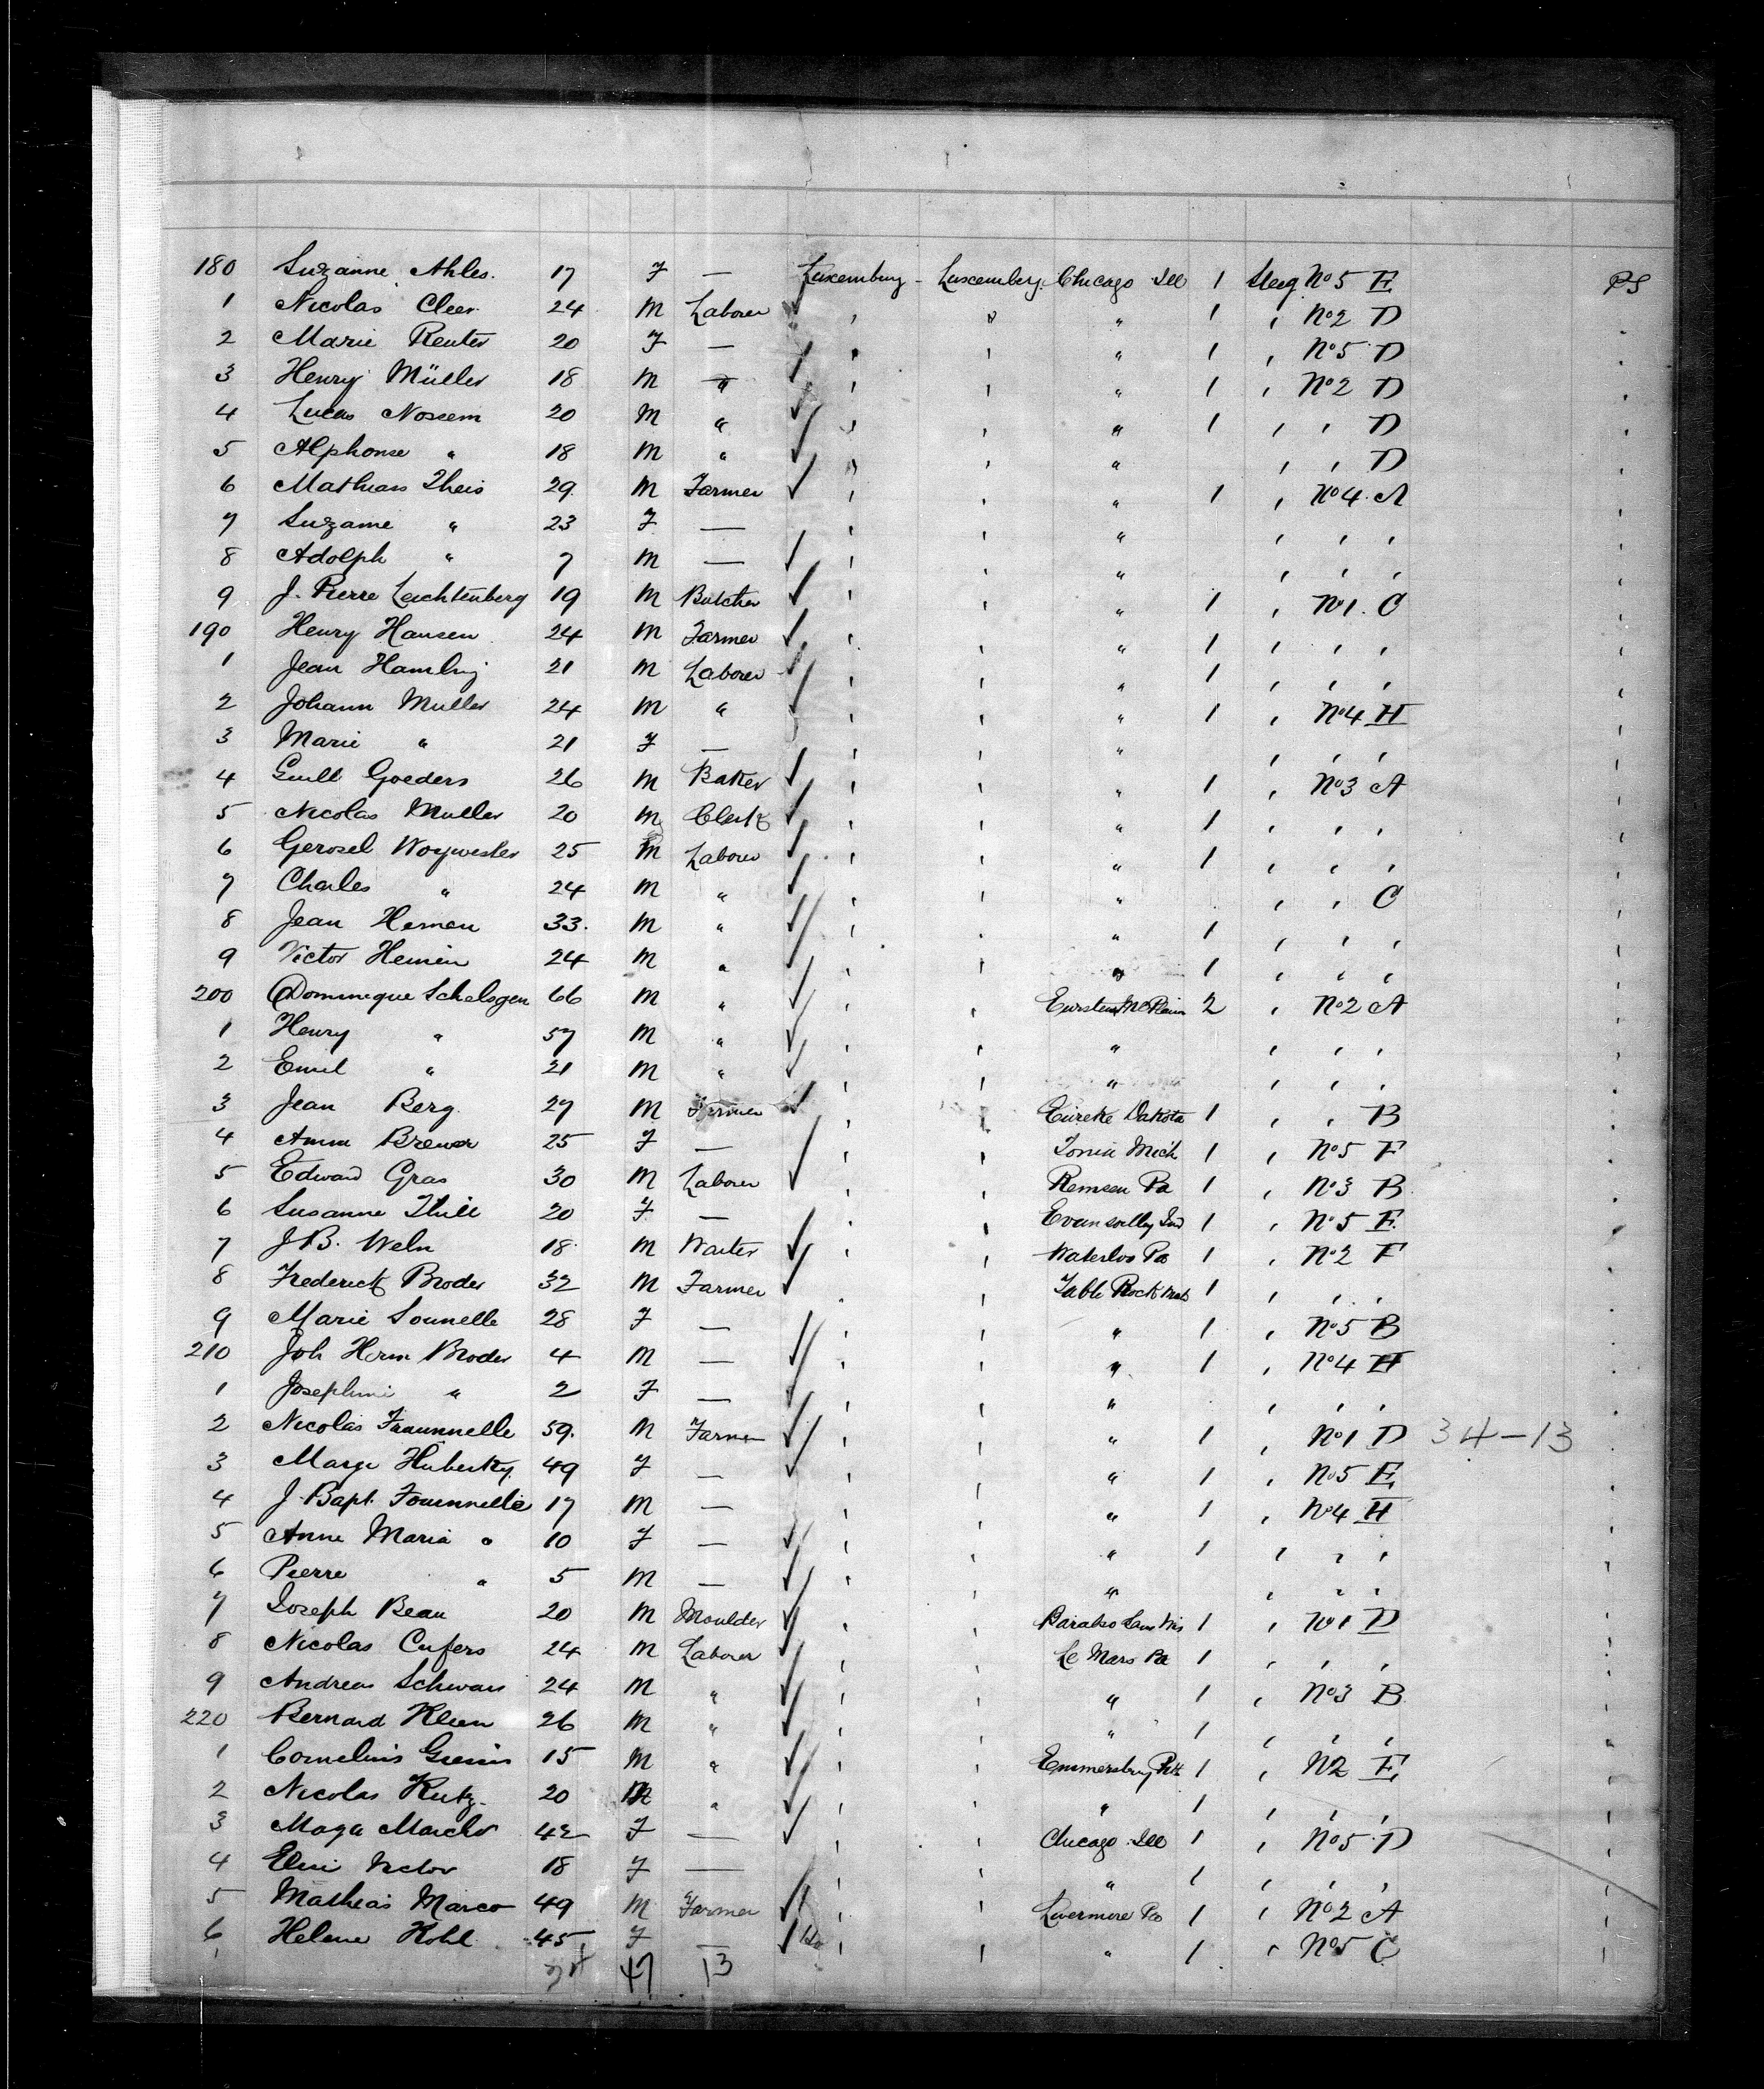 180 Suzanne Ahles. 17 F — Luxemburg - Luxemburg. Chicago Ill 1 Steeg No 5 E
PS
1 Nicolas Cleer 24 M Laborer ✓ " " " 1 " No 2 D
2 Marie Reuter 20 F — " " " 1 " No 5 D
3 Henry Müller 18 M " ✓ " " " 1 " No 2 D
4 Lucas Nossem 20 M " ✓ " " " 1 " " D
5 Alphonse " 18 M " ✓ " " " " " D
6 Mathias Theis 29 M Farmer ✓ " " " 1 " No 4 A
7 Suzanne " 23 F — " " " " " "
8 Adolph " 7 M — ✓ " " " " " "
9 J. Pierre Leichtenberg 19 M Butcher ✓ " " " 1 " No 1. C
190 Henry Hansen 24 M Farmer ✓ " " " 1 " " "
1 Jean 21 M Laborer ✓ " " " 1 " " "
2 Johann Muller 24 M " ✓ " " " 1 " No 4 H
3 Marie " 21 F — " " " " " "
4 Guill Goeders 26 M Baker ✓ " " " 1 " No 3 A
5 Nicolas Muller 20 M Clerk ✓ " " " 1 " " "
6 25 M Laborer ✓ " " " 1 " " "
7 Charles " 24 M " ✓ " " " " " C
8 Jean Hemen 33. M " ✓ " " " 1 " " "
9 Victor Hemen 24 M " ✓ " " " 1 " " "
200 Dominique Schelsgen 66 M " ✓ " " 2 " No 2 A
1 Henry " 57 M " ✓ " " " " " "
2 Emil " 21 M " ✓ " " " " " "
3 Jean Berg 27 M Farmer ✓ " " Eureke Dakota 1 " " B
4 Anna Brewer 25 F — " " Ionia Mich 1 " No 5 F
5 Edward Gras 30 M Laborer ✓ " " Remsen Pa 1 " No 3 B
6 Susanne Thill 20 F — " " Evansvilly Ind 1 " No 5 E
7 J.B. Weln 18 M Waiter ✓ " " Waterloo Pa 1 " No 2 F
8 Frederick Broder 32 M Farmer ✓ " " Table Rock 1 " " "
9 Marie Sounelle 28 F — " " " 1 " No 5 B
210 Joh Herm Broder 4 M — ✓ " " " 1 " No 4 H
1 Josephine " 2 F — ✓ " " " " " "
2 Nicolas Fraunnelle 59. M Farmer ✓ " " " 1 " No 1 D 34-13
3 Marge Huberty 49 F — ✓ " " " 1 " No 5 E
4 J. Bapt. Fouennelle 17 M — " " " 1 " No 4 H
5 Anne Maria " 10 F — ✓ " " " 1 " " "
6 Pierre " 5 M — ✓ " " " " " "
7 Joseph Beau 20 M Moulder ✓ " " 1 " No 1 D
8 Nicolas Cufers 24 M Laborer ✓ " " Le Mars Pa 1 " " "
9 Andreas Schwars 24 M " ✓ " " " 1 " No 3 B
220 Bernard Kleen 26 M " ✓ " " " 1 " " "
1 Cornelius 15 M " ✓ " " 1 " No 2 E
2 Nicolas Kutz. 20 M " ✓ " " " 1 " " "
3 Maga 42 F — ✓ " " Chicago Ill 1 " No 5 D
4 Victor 18 F — " " " 1 " " "
5 Matheas Marco 49 M Farmer ✓ " " Livermore Pa 1 " No 2 A
6 Helene Kohl 45 F — ✓ " " " 1 " No 5 C
47 13